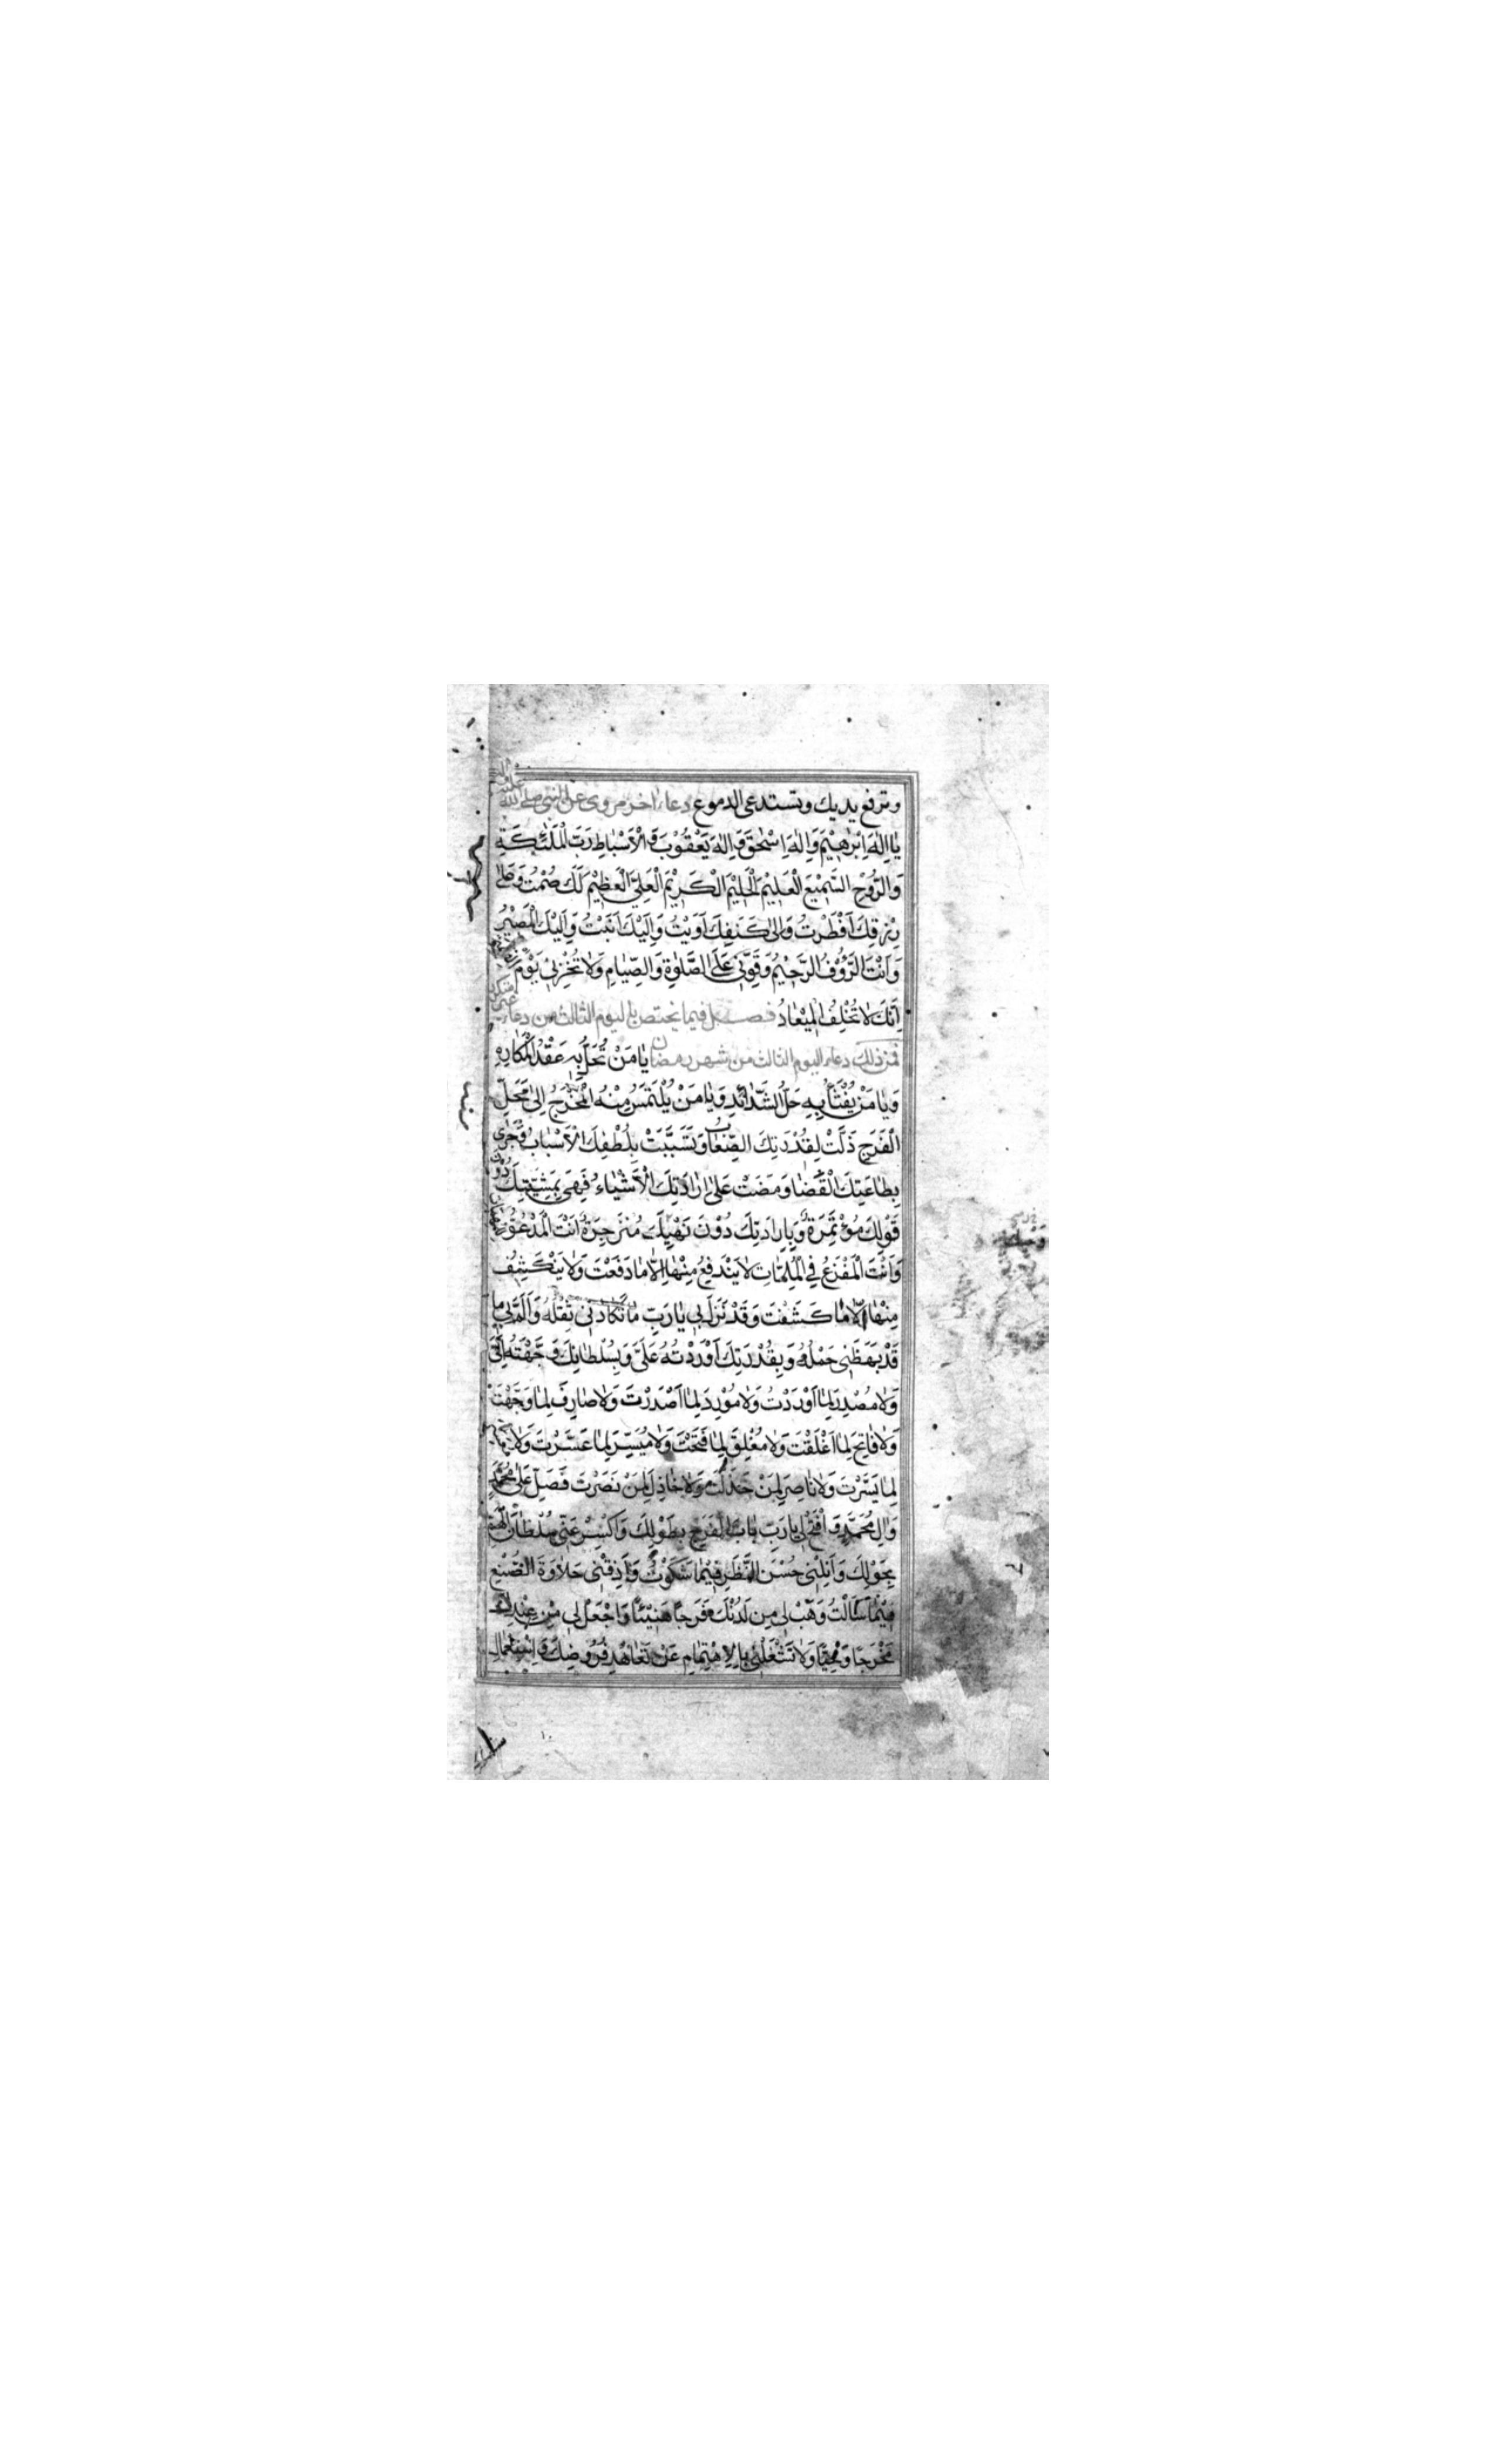 وترفع يديك وتستدعى الدموع دعاء اخر مروى عن النبى صلى الله عليه واله
يا اِلٰهَ اِبْرٰهيْمَ وَاِلٰهَ اِسْحٰقَ وَاِلٰهَ يَعْقُوْبَ وَالْاَسْبٰاطِ رَبَّ الْمَلٰئِكَةِ
وَالرُّوْحِ السَّمِيْعَ الْعَلِيْمَ الْحَلِيْمَ الْكَرِيْمَ الْعَلِيَّ الْعَظِيْمَ لَكَ صُمْتُ وَعَلىٰ
رِزْقِكَ اَفْطَرْتُ وَاِلىٰ كَنَفِكَ اٰوَيْتُ وَاِلَيْكَ اَنَبْتُ وَاِلَيْكَ الْمَصْيْرُ
وَاَنْتَ الرَّؤُفُ الرَّحِيْمُ وَقَوِّنىْ عَلَى الصَّلٰوةِ وَالصِّيٰامِ وَلٰا تُخْزِنىْ يَوْمَ
اِنَّكَ لٰا تُخْلِفُ الْمِيْعٰادُ فصـــل فيما يختص باليوم الثالث من دعاء غير متكرر
فمن ذلك دعاء اليوم الثالث من شهر رمضان يٰا مَنْ تُحَلُّ بِهِ عَقْدُ الْمَكٰارِهِ
وَيٰا مَنْ يُفْثَأُ بِهِ حَلُّ الشَّدٰائِدِ وَيٰا مَنْ يُلْتَمَسُ مِنْهُ الْمَخْرَجُ اِلىٰ مَحَلِّ
الْفَرَجِ ذَلَّتْ لِقُدْرَتِكَ الصِّعٰابُ وَتَسَبَّبَتْ بِلُطْفِكَ الْاَسْبٰابُ وَجَرىٰ
بِطٰاعَتِكَ الْقَضٰا وَمَضَتْ عَلىٰ اِرٰادَتِكَ الْاَشْيٰاءُ فَهِىَ بِمَشِيَّتِكَ دُوْنَ
قَوْلِكَ مُؤْتَمِرَةٌ وَبِاِرٰادَتِكَ دُوْنَ نَهْيِكَ مُنْزَجِرَةٌ اَنْتَ الْمَدْعُوُّ
وَاَنْتَ الْمَفْزَعُ فِي الْمُلِمّٰاتِ لٰا يَنْدَفِعُ مِنْهٰا اِلّٰا مٰا دَفَعْتَ وَلٰا يَنْكَشِفُ
مِنْهٰا اِلّٰا مٰا كَشَفْتَ وَقَدْ نَزَلَ بِى يٰا رَبِّ مٰا تَكٰادَنىْ ثِقْلُهُ وَاَلَمَّ بِى مٰا
قَدْ بَهَظَنِى حَمْلُهُ وَبِقُدْرَتِكَ اَوْرَدْتُهُ عَلَىَّ وَبِسُلْطٰانِكَ وَجَّهْتَهُ اِلَىَّ
وَلٰا مُصْدِرَ لِمٰا اَوْرَدْتُ وَلٰا مُوْرِدَ لِمٰا اَصْدَرْتَ وَلٰا صٰارِفَ لِمٰا وَجَّهْتَ
وَلٰا فٰاتِحَ لِمٰا اَغْلَقْتَ وَلٰا مُغْلِقَ لِمٰا فَتَحْتَ وَلٰا مُيَسِّرَ لِمٰا عَسَّرْتَ وَلٰا
لِمٰا يَسَّرْتَ وَلٰا نٰاصِرَ لِمَنْ خَذَلْتَ وَلٰا خٰاذِلَ لِمَنْ نَصَرْتَ فَصَلِّ عَلىٰ مُحَمَّدٍ
وَاٰلِ مُحَمَّدٍ وَافْتَحْ لِى يٰا رَبِّ بٰابَ الْفَرَجِ بِطَوْلِكَ وَاكْسِرْ عَنّىْ سُلْطٰانَ الْهَمِّ
بِحَوْلِكَ وَاَنِلْنِى حُسْنَ النَّظَرِ فِيْمٰا شَكَوْتُ وَاَذِقْنِى حَلٰاوَةَ الصُّنْعِ
فِيْمٰا سَأَلْتُ وَهَبْ لِى مِن لَدُنْكَ فَرَجًا هَنِيْئًا وَاجْعَلْ لِى مِنْ عِنْدِكَ
مَخْرَجًا وَحِيًّا وَلٰا تَشْغَلْنِى بِالْاِهْتِمٰامِ عَنْ تَعٰاهُدِ فُرُوْضِكَ وَاسْتِعْمٰالِ